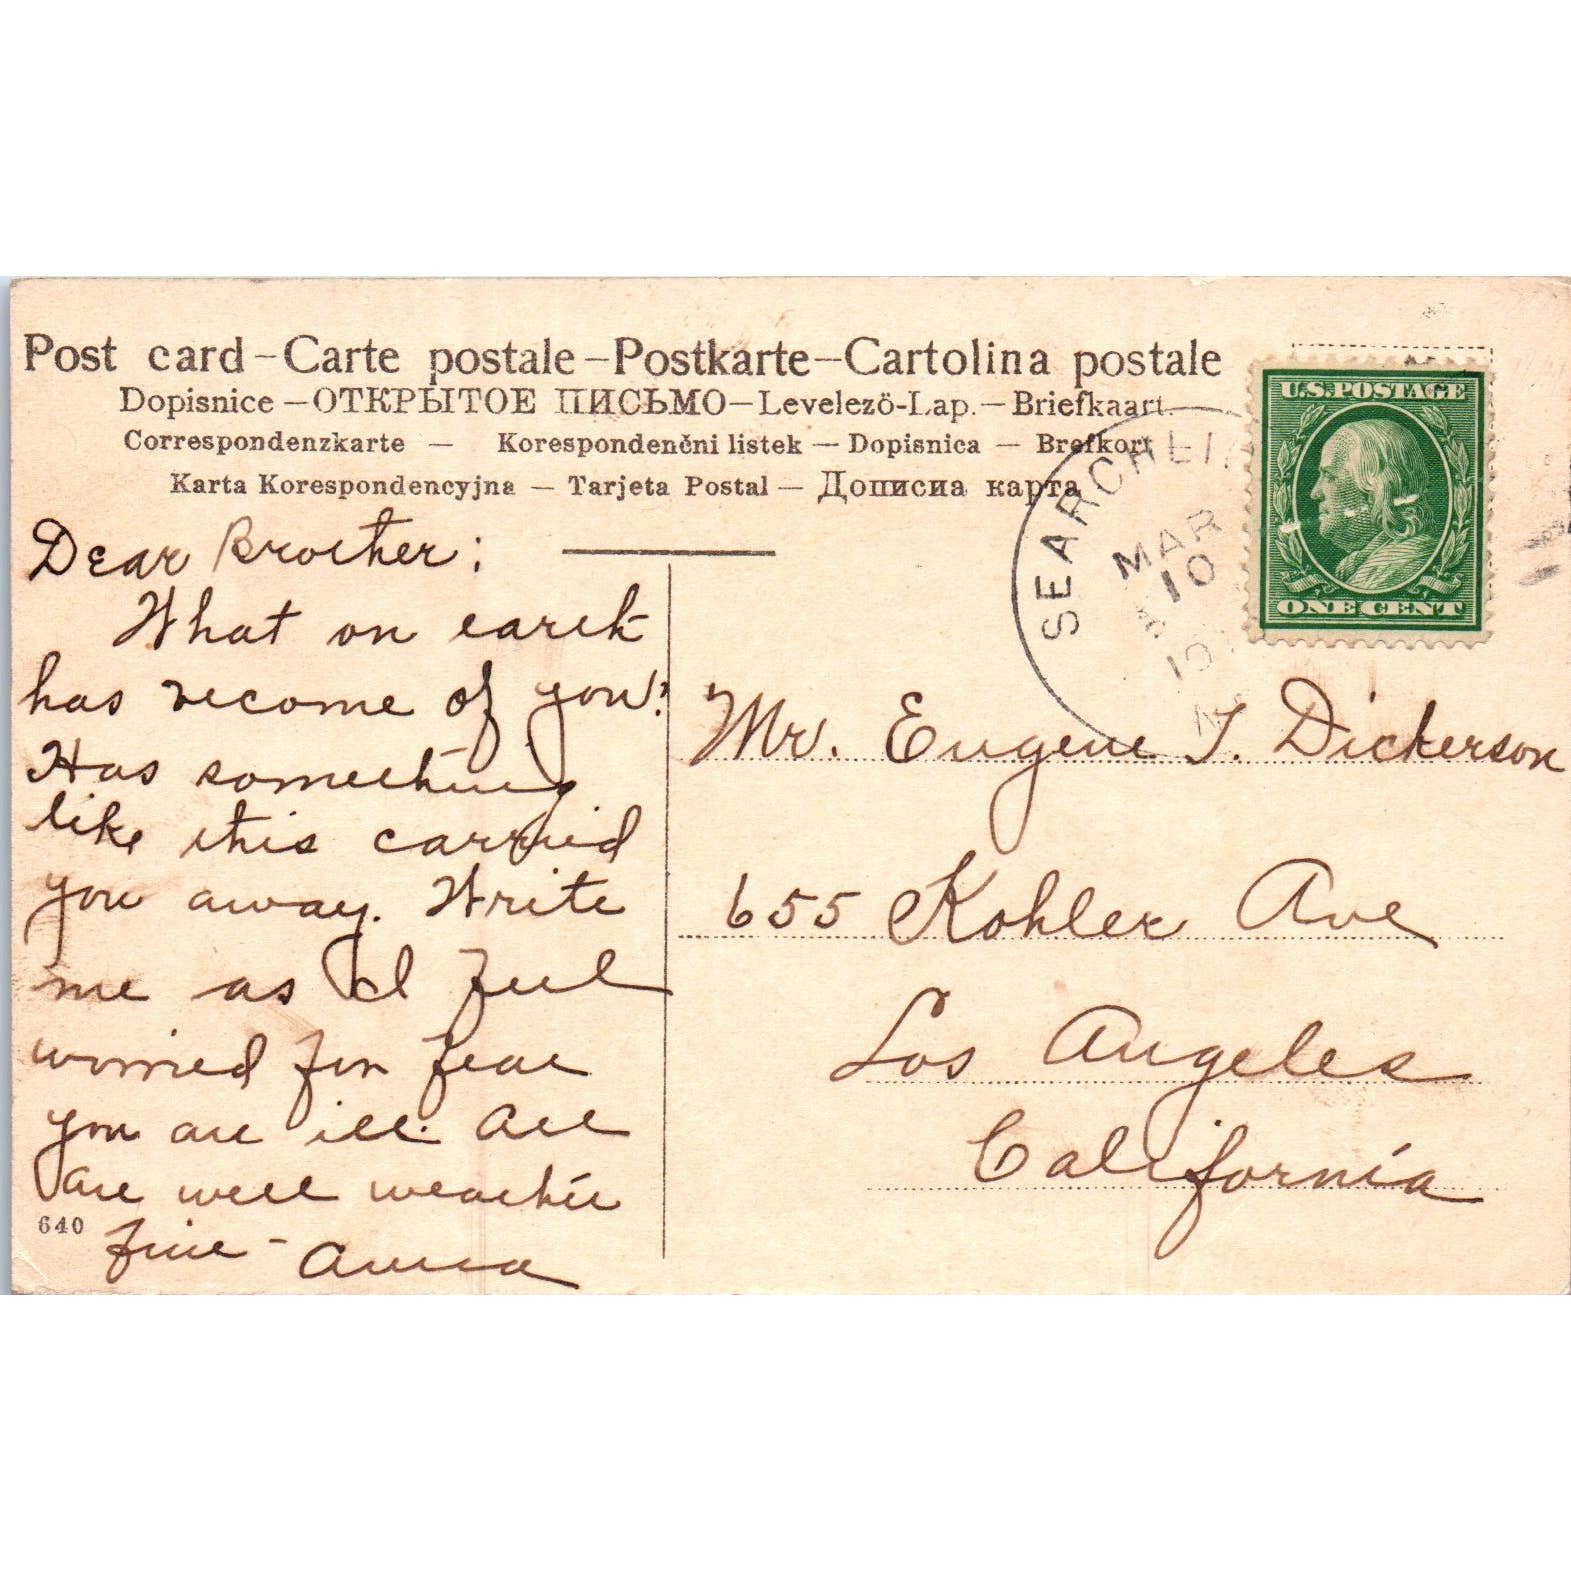 Post card – Carte postale – Postkarte – Cartolina postale
Dopisnice – ОТКРЫТОЕ ПИСЬМО – Levelezö-Lap. – Briefkaart.
Correspondenzkarte – Korespondenčni listek – Dopisnica – Brefkort
Karta Korespondencyjna – Tarjeta Postal – Дописна карта
SEARCHLI
MAR
10
U.S. POSTAGE
ONE CENT
Dear Brother:
What on earth
has become of you?
Has something
like this carried
you away. Write
me as I feel
worried for fear
you are ill. All
are well weather
fine - Anna
640
Mr. Eugene T. Dickerson
655 Kohler Ave
Los Angeles
California